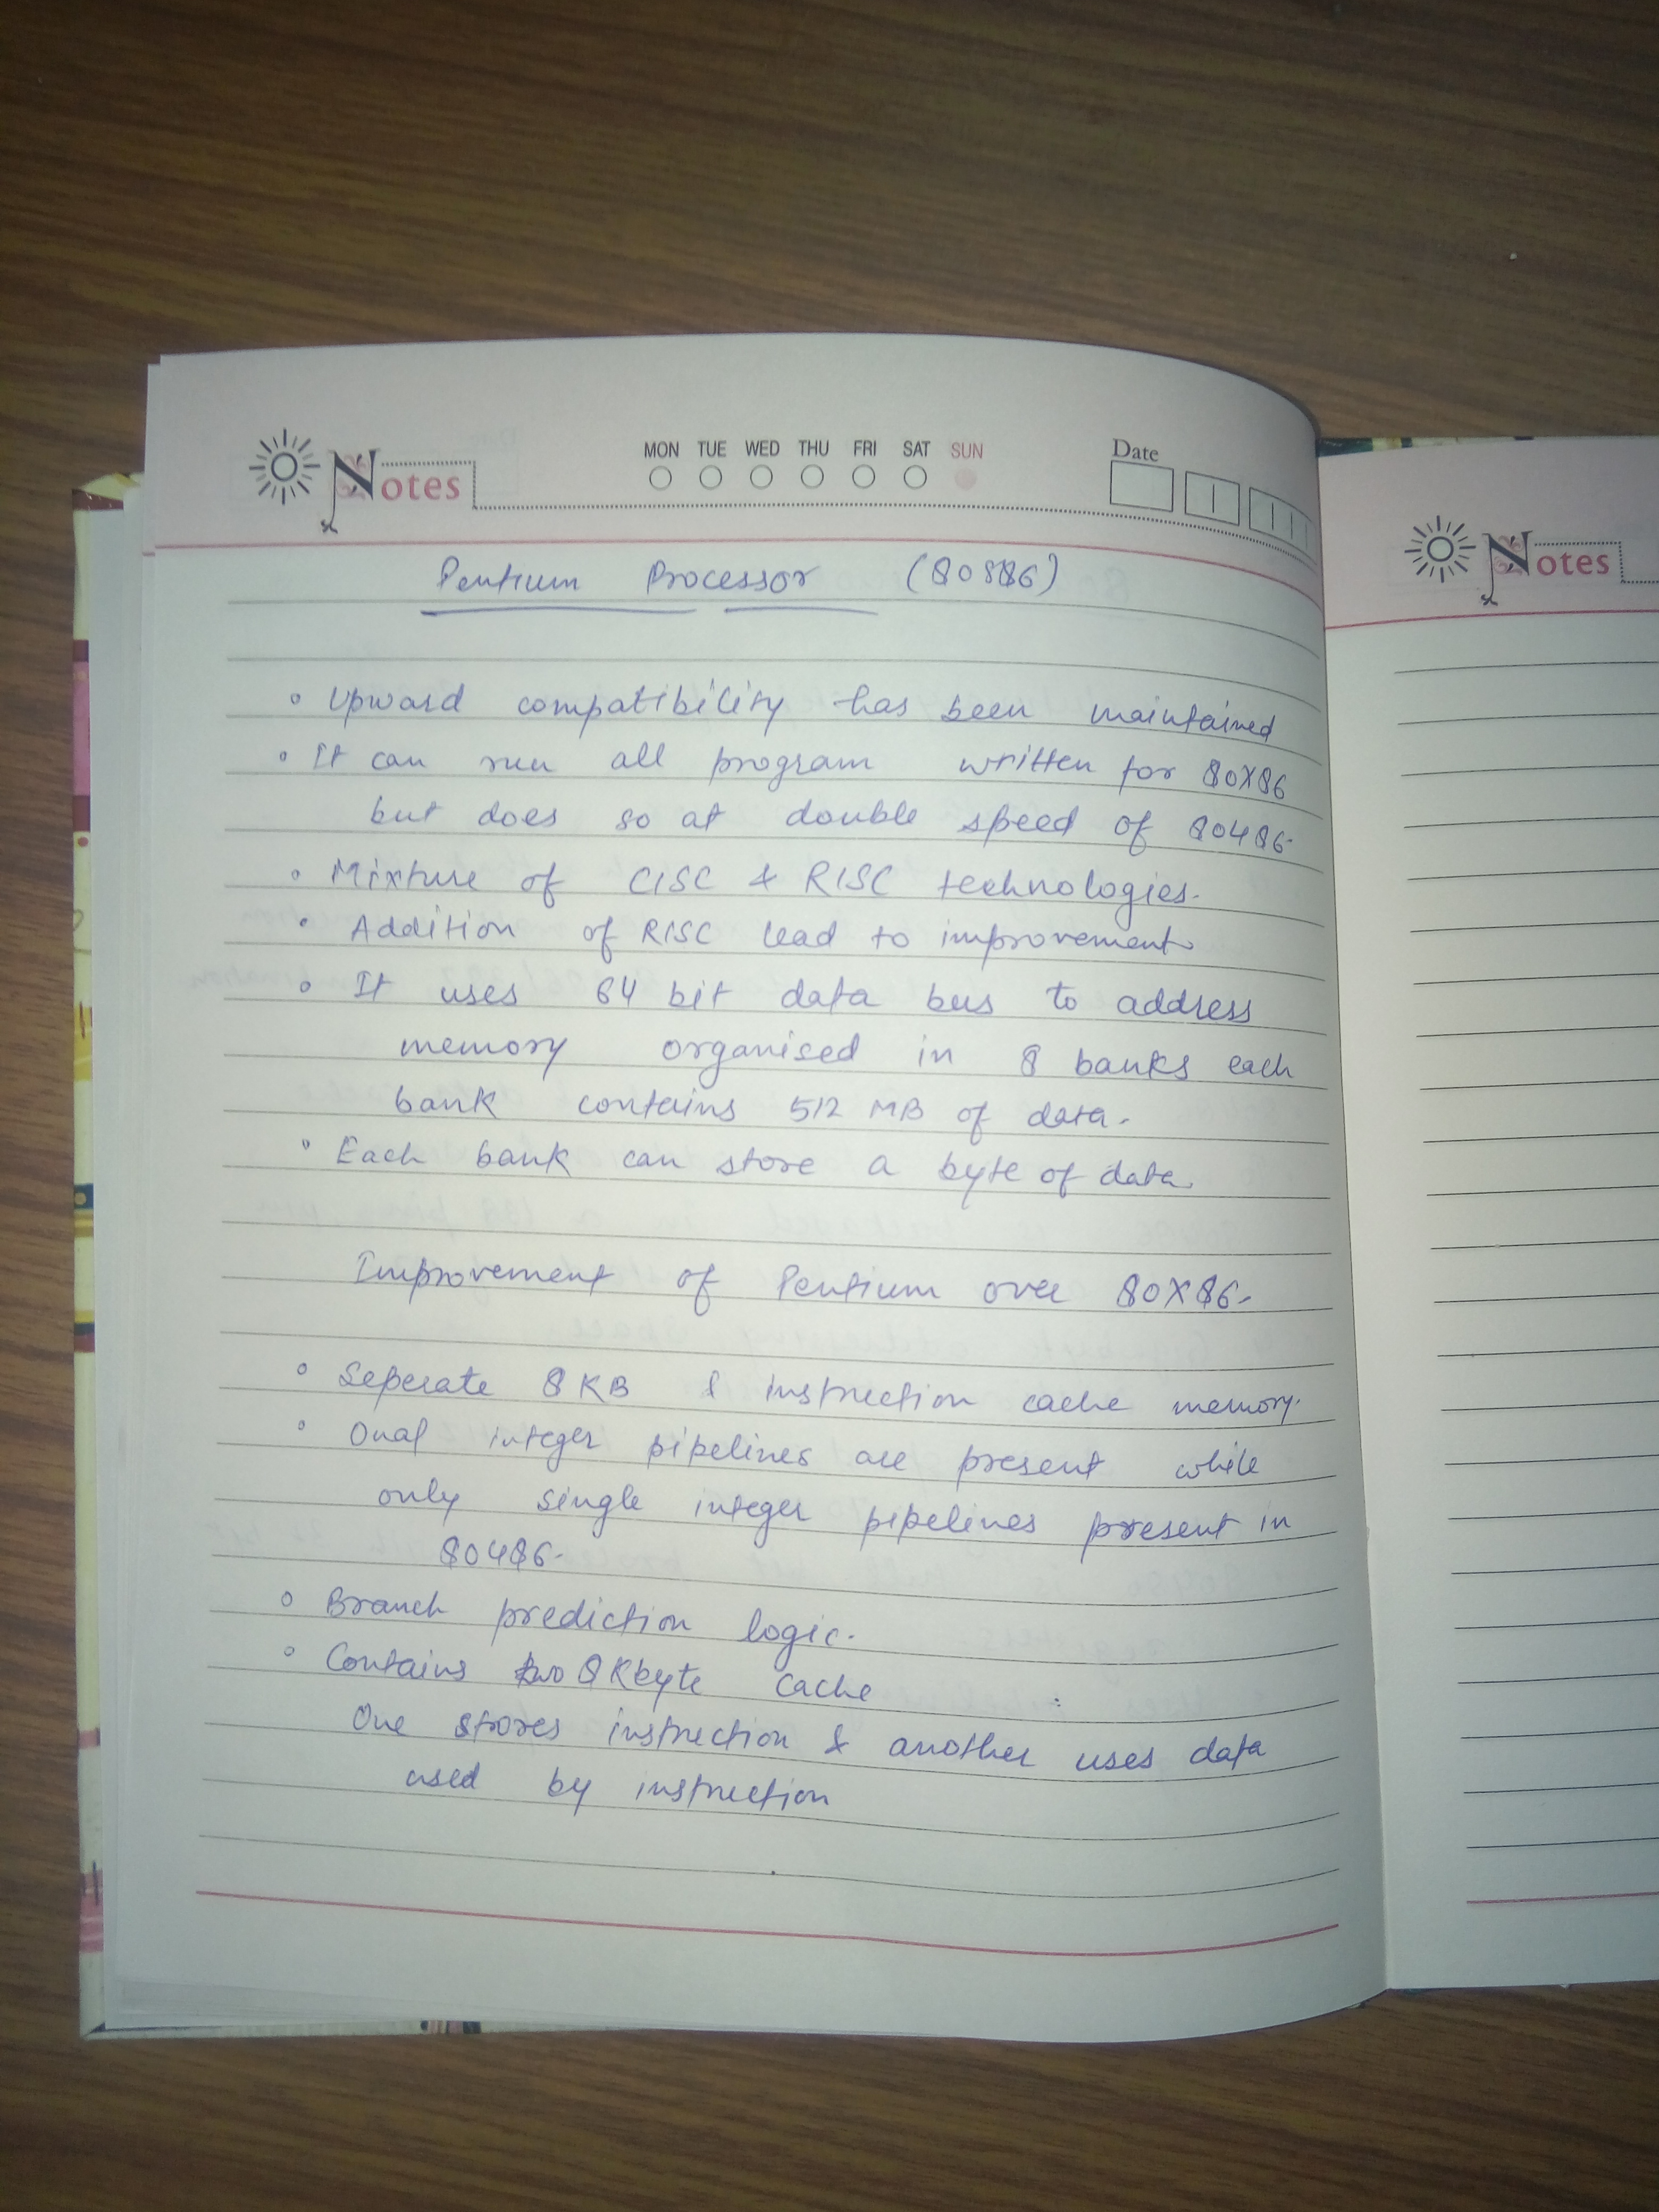 Notes
MON TUE WED THU FRI SAT SUN
Date
Pentium Processor (80586)
• Upward compatibility has been maintained
• It can run all program written for 80X86
but does so at double speed of 80486.
• Mixture of CISC & RISC technologies.
• Addition of RISC lead to improvement.
• It uses 64 bit data bus to address
memory organised in 8 banks each
bank contains 512 MB of data.
• Each bank can store a byte of data.
Improvement of Pentium over 80X86.
• Seperate 8 KB & instruction cache memory.
• Dual integer pipelines are present while
only single integer pipelines present in
80486.
• Branch prediction logic.
• Contains two 8 Kbyte cache
One stores instruction & another uses data
used by instruction
Notes